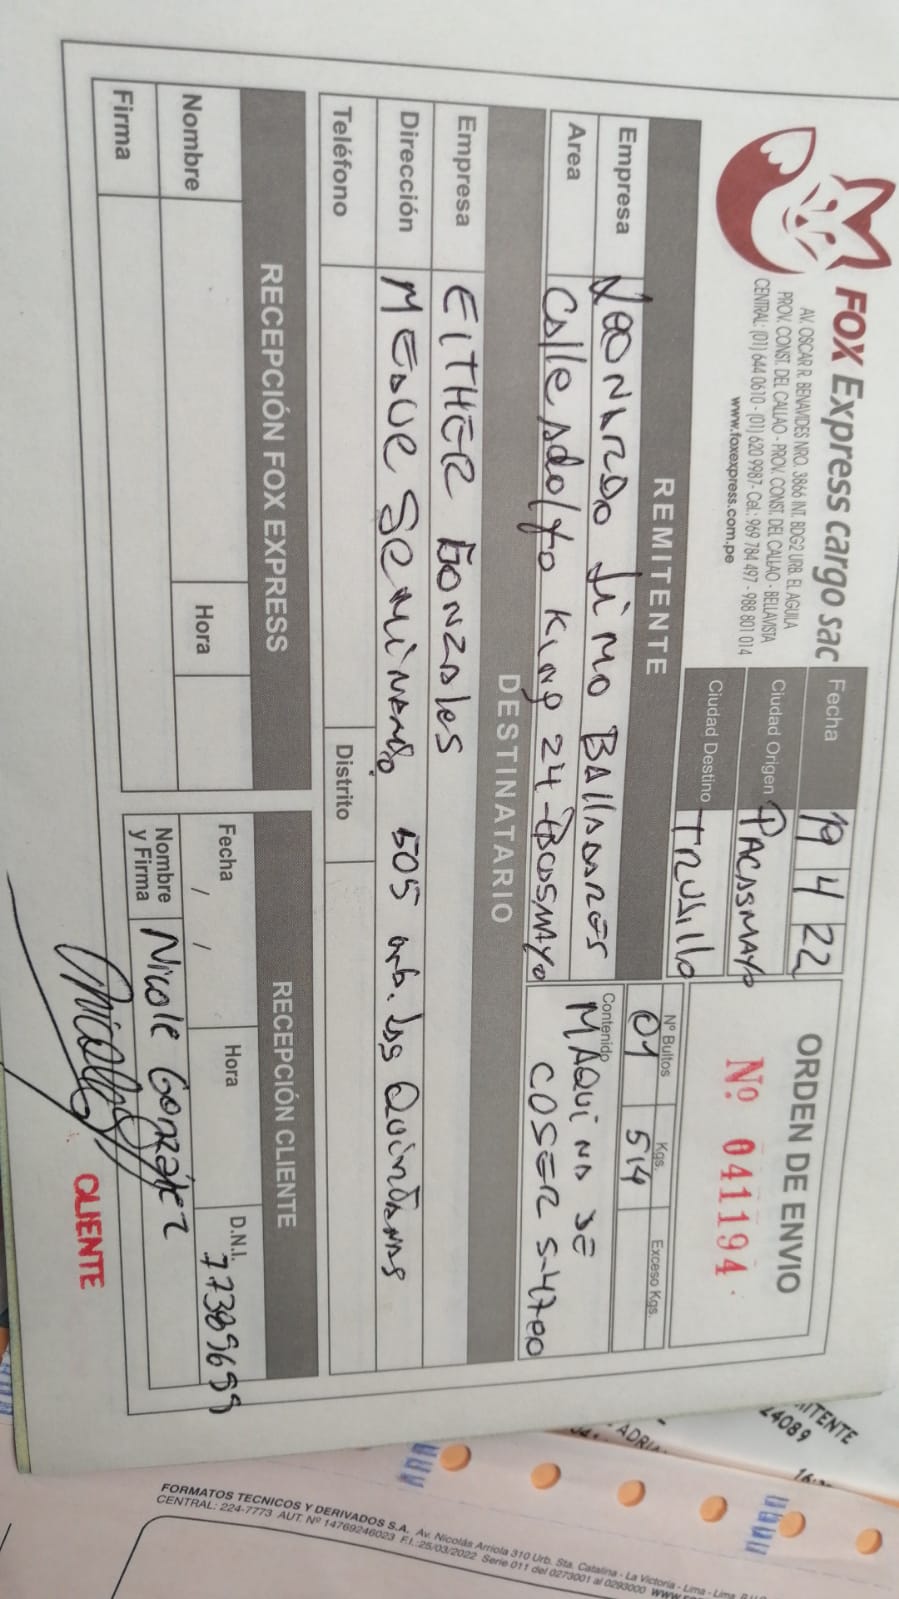 FOX Express cargo sac
AV. OSCAR R. BENAVIDES NRO. 3866 INT. BDG2 URB. EL AGUILA
PROV. CONST. DEL CALLAO - PROV. CONST. DEL CALLAO - BELLAVISTA
CENTRAL: (01) 644 0610 - (01) 620 9987 - Cel.: 969 784 497 - 988 801 014
www.foxexpress.com.pe
Fecha 19 4 22
Ciudad Origen PACASMAYO
Ciudad Destino TRUJILLO
ORDEN DE ENVIO
Nº 041194
REMITENTE
Empresa LEONARDO LIMO BALLADARES
Area Calle Adolfo King 24 - PACASMAYO
Nº Bultos 01 Kgs. 514 Exceso Kgs.
Contenido MAQUINA DE
COSER S-4700
DESTINATARIO
Empresa EITHER GONZALES
Dirección 505 urb. Las Quintanas
Teléfono Distrito
RECEPCIÓN FOX EXPRESS
Nombre Hora
Firma
RECEPCIÓN CLIENTE
Fecha / / Hora D.N.I. 77389699
Nombre y Firma Nicole Gonzalez
CLIENTE
MITENTE
24089
ADRIA
FORMATOS TECNICOS Y DERIVADOS S.A. Av. Nicolás Arriola 310 Urb. Sta. Catalina - La Victoria - Lima - Lima
CENTRAL: 224-7773 AUT. Nº 14769246023 F.I.:25/03/2022 Serie 011 del 0273001 al 0293000